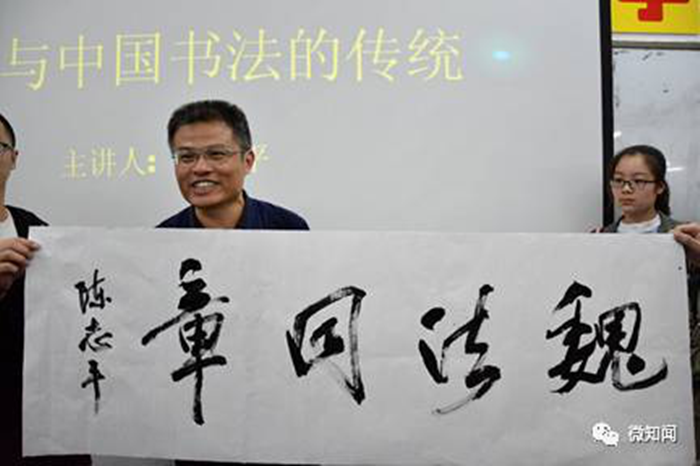 与中国书法的传统
主讲人:
魏法同章
陈志平
微知闻